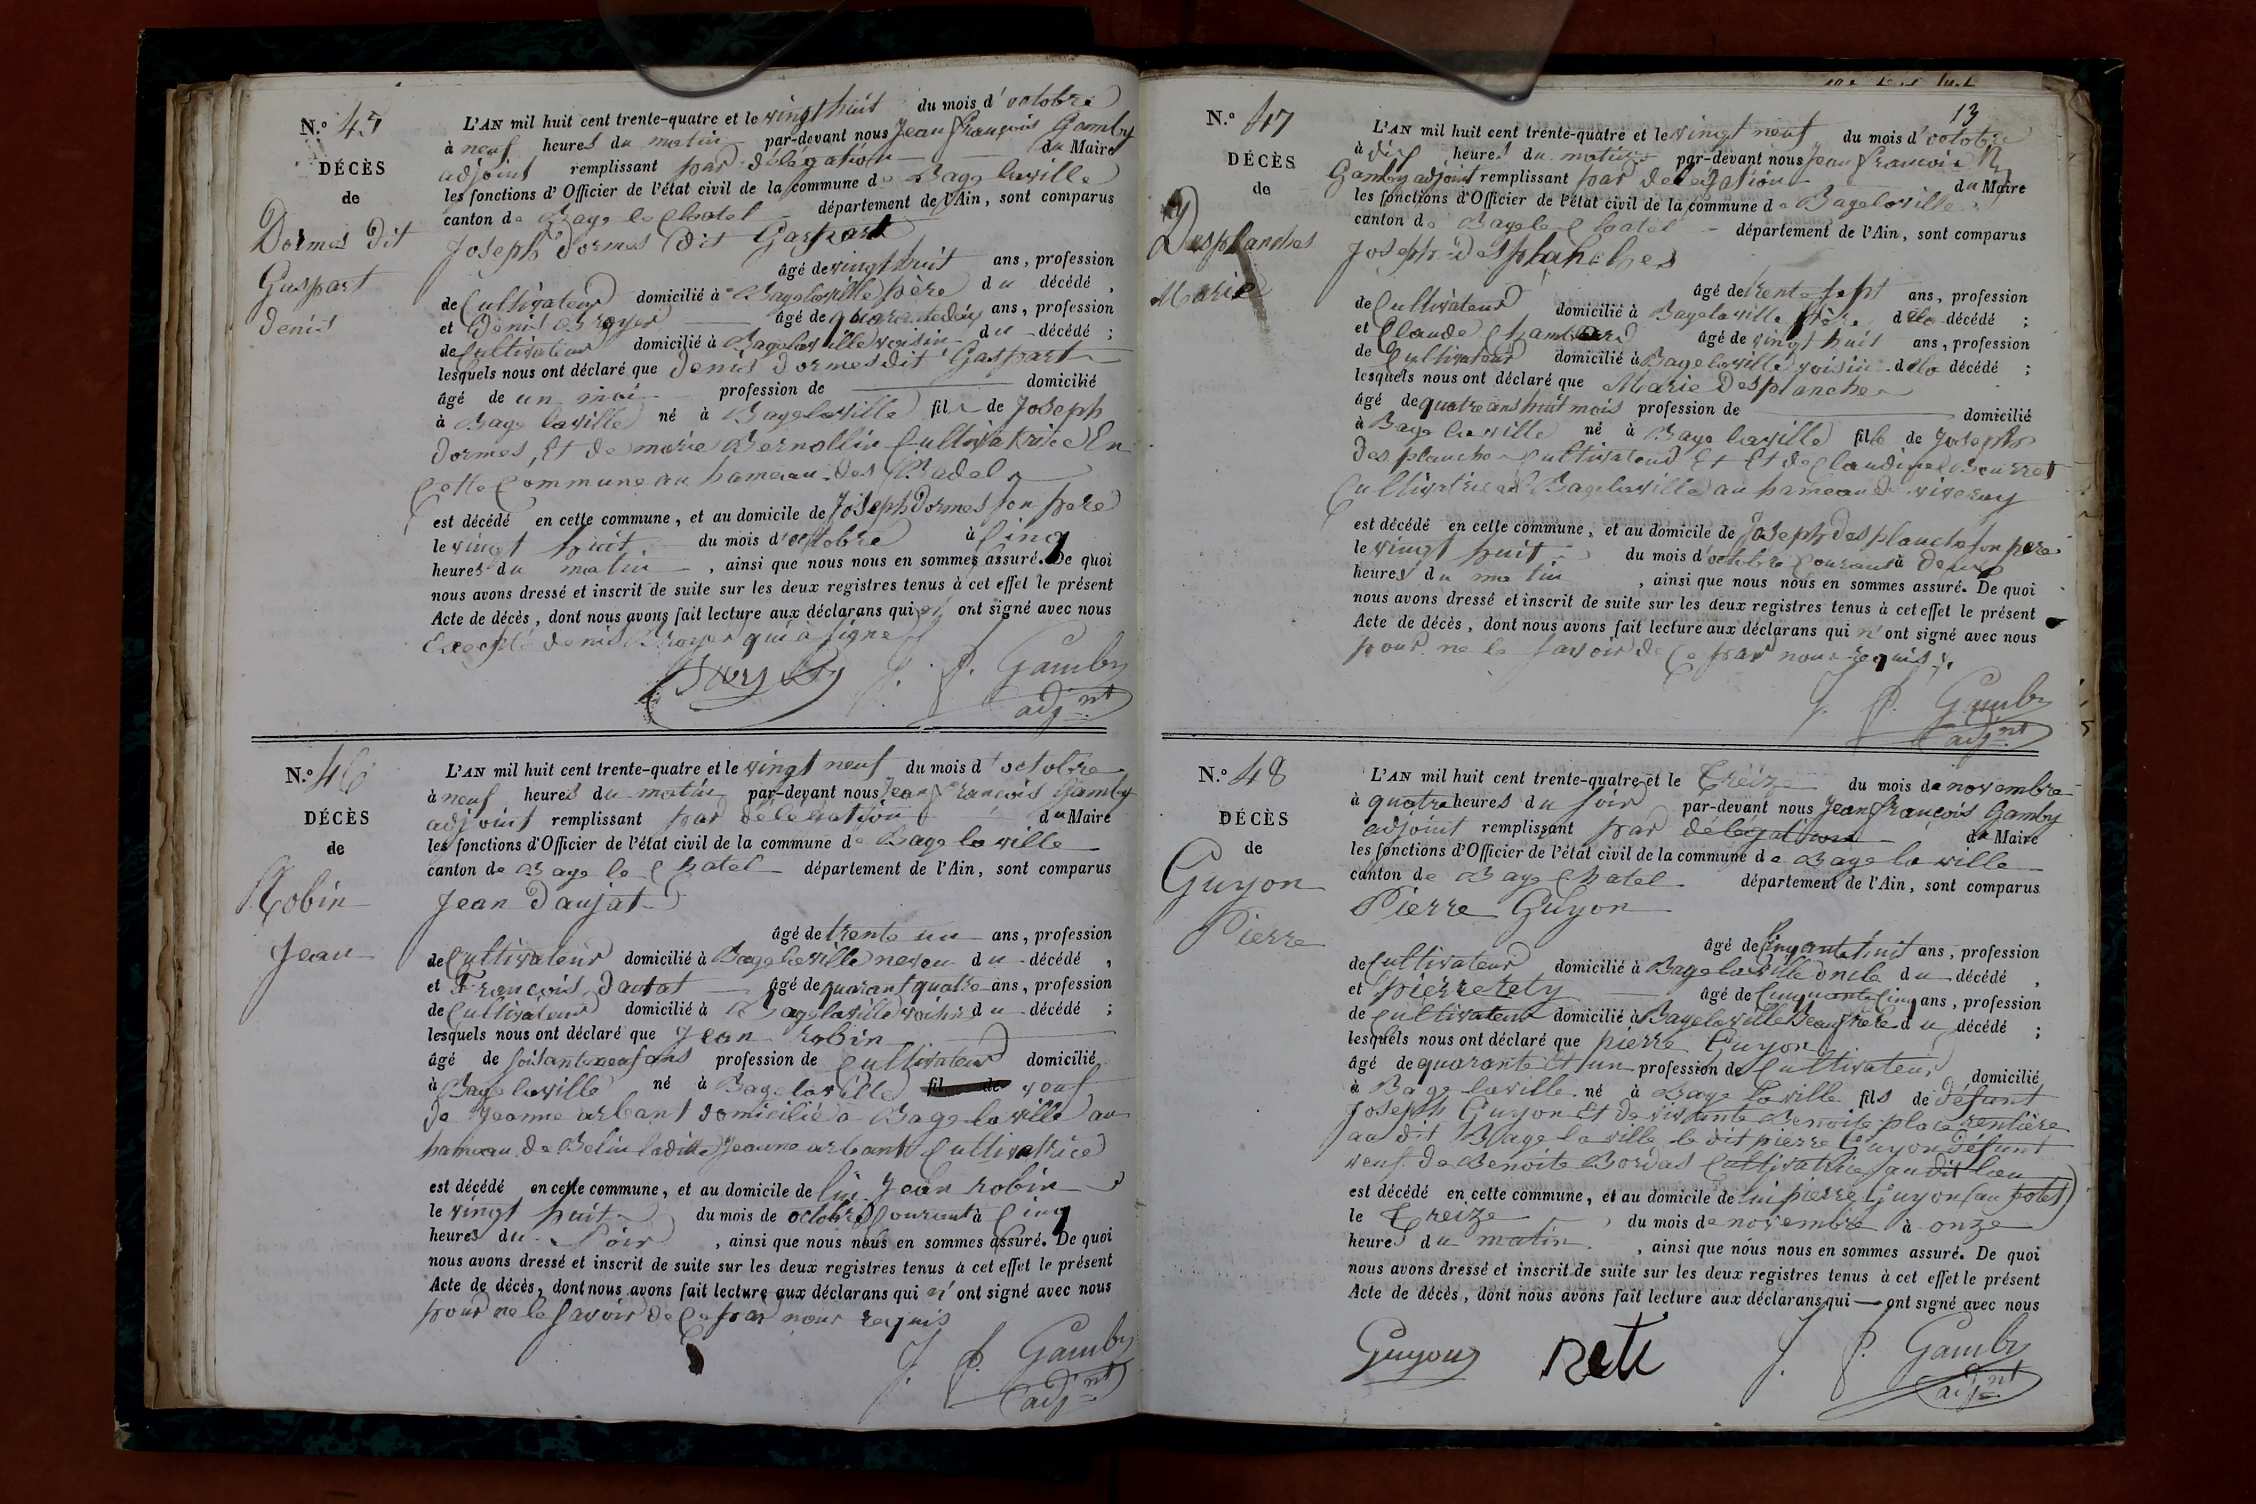 N.º 45
DÉCÈS
de
Dormes dit
Gaspart
denis
L'AN mil huit cent trente-quatre et le vingt huit du mois d'octobre
à neuf heures du matin par-devant nous Jean François Gamby
adjoint remplissant par délégation du Maire
les fonctions d'Officier de l'état civil de la commune de Bage laville
canton de Bage le Chatel département de l'Ain, sont comparus
Joseph dormes dit Gaspart
âgé de vingt huit ans, profession
de Cultivateur domicilié à Bagelaville père du décédé,
et Denis Broyer âgé de quarante deux ans, profession
de Cultivateur domicilié à Bagelaville voisin du décédé;
lesquels nous ont déclaré que denis dormes dit Gaspart
âgé de un moi profession de domicilié
à Bage laville né à Bagelaville fils de Joseph
dormes, Et de marie Bernollin Cultivatrice En
Cette Commune au hameau des
est décédé en cette commune, et au domicile de Joseph Dormes son pere
le vingt huit du mois d'octobre à Cinq
heures du matin, ainsi que nous nous en sommes assuré. De quoi
nous avons dressé et inscrit de suite sur les deux registres tenus à cet effet le présent
Acte de décès, dont nous avons fait lecture aux déclarans qui n' ont signé avec nous
Excepté denis Broyer qui a signé
J. F. Gamby
adj.nt
N.º 46
DÉCÈS
de
Robin
Jean
L'AN mil huit cent trente-quatre et le vingt neuf du mois d'octobre
à neuf heures du matin par-devant nous Jean François Gamby
adjoint remplissant par délégation du Maire
les fonctions d'Officier de l'état civil de la commune de Bage laville
canton de Bage le Chatel département de l'Ain, sont comparus
Jean Daujat
âgé de trente un ans, profession
de Cultivateur domicilié à Bagelaville neveu du décédé,
et François Daujat âgé de quarant quatre ans, profession
de Cultivateur domicilié à Bagelaville voisin du décédé;
lesquels nous ont déclaré que Jean robin
âgé de soisant neuf ans profession de Cultivateur domicilié
à Bage laville né à Bagelaville veuf
de Jeanne arbant domicilié a Bage la ville au
hameau de Belin ladite Jeanne arbant Cultivatrice
est décédé en cette commune, et au domicile de lui Jean robin
le vingt huit du mois de octobre Courant à Cinq
heures du Soir, ainsi que nous nous en sommes assuré. De quoi
nous avons dressé et inscrit de suite sur les deux registres tenus à cet effet le présent
Acte de décès, dont nous avons fait lecture aux déclarans qui n' ont signé avec nous
pour ne le savoir de Ce par nous requis
J. F. Gamby
adj.nt
13
N.º 47
DÉCÈS
de
Desplanches
Marie
L'AN mil huit cent trente-quatre et le vingt neuf du mois d'octobre
à dix heures du matin par-devant nous Jean francois
Gamby adjoint remplissant par délégation du Maire
les fonctions d'Officier de l'état civil de la commune de Bagelaville
canton de Bagele Chatel département de l'Ain, sont comparus
Joseph desplanches
âgé de trente sept ans, profession
de Cultivateur domicilié à Bagelaville père de la décédé;
et Claude Chambard âgé de vingt huit ans, profession
de Cultivateur domicilié à Bagelaville voisin de la décédé;
lesquels nous ont déclaré que Marie Desplanches
âgé de quatre ans huit mois profession de domicilié
à Bage laville né à Bage laville fille de Joseph
Des planches Cultivateur Et Et de Claudine Bourret
Cultivatrice a Bagelaville au hameau de
est décédé en cette commune, et au domicile de Joseph des planches son pere
le vingt huit du mois d'octobre Courant à deux
heures du matin, ainsi que nous nous en sommes assuré. De quoi
nous avons dressé et inscrit de suite sur les deux registres tenus à cet effet le présent
Acte de décès, dont nous avons fait lecture aux déclarans qui n' ont signé avec nous
pour ne le savoir de Ce par nous requis
J. F. Gamby
adj.nt
N.º 48
DÉCÈS
de
Guyon
Pierre
L'AN mil huit cent trente-quatre et le Treize du mois de novembre
à quatre heures du soir par-devant nous Jean françois Gamby
adjoint remplissant par délégation du Maire
les fonctions d'Officier de l'état civil de la commune de Bage la ville
canton de Bage Chatel département de l'Ain, sont comparus
Pierre Guyon
âgé de Cinquante huit ans, profession
de Cultivateur domicilié à Bagelaville oncle du décédé,
et pierre rety âgé de Cinquante Cinq ans, profession
de Cultivateur domicilié à Bagelaville Beaufrere du décédé;
lesquels nous ont déclaré que pierre Guyon
âgé de quarante et un profession de Cultivateur domicilié
à Bage laville né à Bage Laville fils de défunt
Joseph Guyon et de vivante Benoite place rentière
au dit Bage la ville le dit pierre Guyon défunt
veuf de Benoite Bordas Cultivatrice au dit lieu
est décédé en cette commune, et au domicile de lui pierre Guyon (au potet)
le Treize du mois de novembre à onze
heures du matin, ainsi que nous nous en sommes assuré. De quoi
nous avons dressé et inscrit de suite sur les deux registres tenus à cet effet le présent
Acte de décès, dont nous avons fait lecture aux déclarans qui — ont signé avec nous
Guyon reti J. F. Gamby
adj.nt